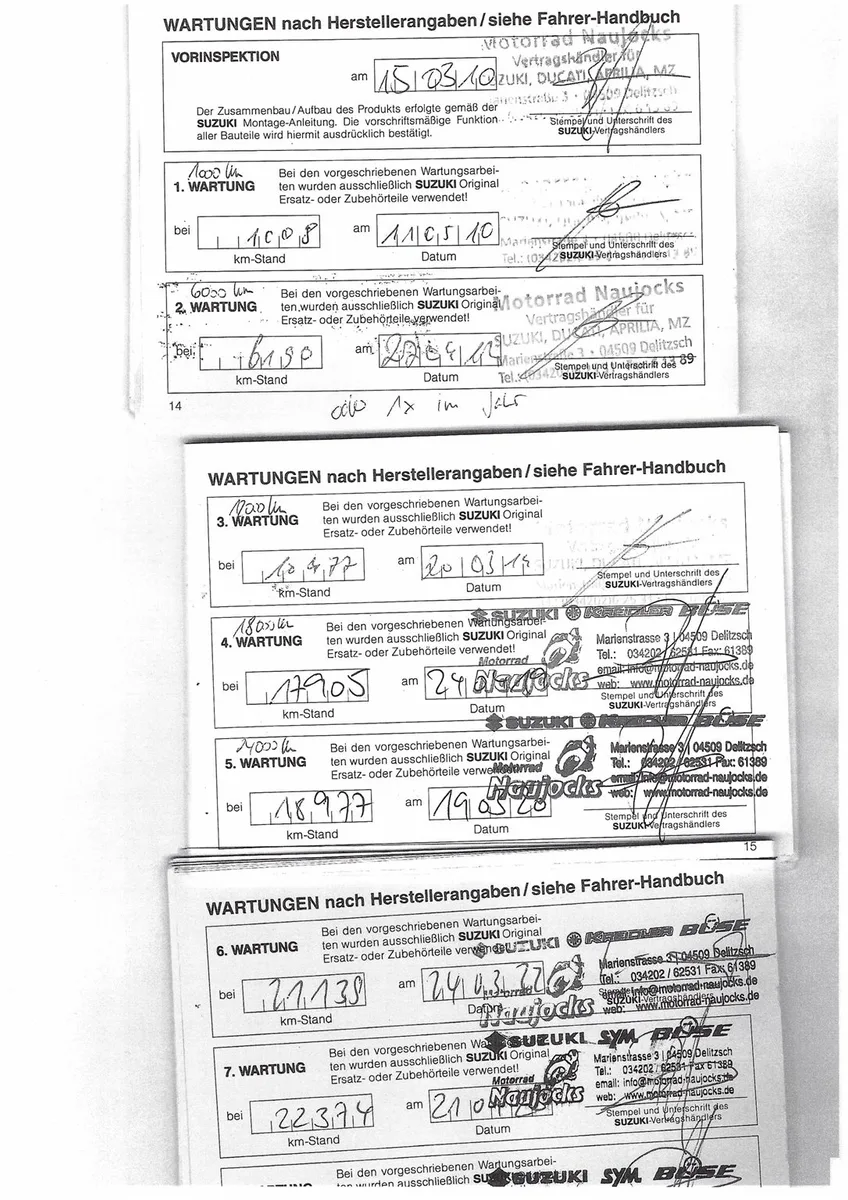 WARTUNGEN nach Herstellerangaben/siehe Fahrer-Handbuch
VORINSPEKTION
Motorrad Naujocks
Vertragshändler für
SUZUKI, DUCATI, APRILIA, MZ
am 15 03 10
Marienstraße 3 • 04509 Delitzsch
Der Zusammenbau/Aufbau des Produkts erfolgte gemäß der
SUZUKI Montage-Anleitung. Die vorschriftsmäßige Funktion
aller Bauteile wird hiermit ausdrücklich bestätigt.
Stempel und Unterschrift des
SUZUKI-Vertragshändlers
1000 km
1. WARTUNG
Bei den vorgeschriebenen Wartungsarbei-
ten wurden ausschließlich SUZUKI Original
Ersatz- oder Zubehörteile verwendet!
bei 1008 am 11 05 10
km-Stand Datum
Stempel und Unterschrift des
SUZUKI-Vertragshändlers
6000 km
2. WARTUNG
Bei den vorgeschriebenen Wartungsarbei-
ten wurden ausschließlich SUZUKI Original
Ersatz- oder Zubehörteile verwendet!
Motorrad Naujocks
Vertragshändler für
SUZUKI, DUCATI, APRILIA, MZ
Marienstraße 3 • 04509 Delitzsch
bei am
km-Stand Datum
Stempel und Unterschrift des
SUZUKI-Vertragshändlers
14
oder 1x im Jahr
WARTUNGEN nach Herstellerangaben/siehe Fahrer-Handbuch
3. WARTUNG
Bei den vorgeschriebenen Wartungsarbei-
ten wurden ausschließlich SUZUKI Original
Ersatz- oder Zubehörteile verwendet!
bei am 20 03 14
km-Stand Datum
Stempel und Unterschrift des
SUZUKI-Vertragshändlers
SUZUKI KREIDLER BÜSE
18000 km
4. WARTUNG
Bei den vorgeschriebenen Wartungsarbei-
ten wurden ausschließlich SUZUKI Original
Ersatz- oder Zubehörteile verwendet!
Motorrad
Naujocks
Marienstrasse 3 | 04509 Delitzsch
Tel.: 034202 / 62531 Fax: 61389
email: info@motorrad-naujocks.de
web: www.motorrad-naujocks.de
bei 17905 am
km-Stand Datum
Stempel und Unterschrift des
SUZUKI-Vertragshändlers
SUZUKI KREIDLER BÜSE
24000 km
5. WARTUNG
Bei den vorgeschriebenen Wartungsarbei-
ten wurden ausschließlich SUZUKI Original
Ersatz- oder Zubehörteile verwendet!
Motorrad
Naujocks
Marienstrasse 3 | 04509 Delitzsch
Tel.: 034202 / 62531 Fax: 61389
email: info@motorrad-naujocks.de
web: www.motorrad-naujocks.de
bei 18977 am 19 05 20
km-Stand Datum
Stempel und Unterschrift des
SUZUKI-Vertragshändlers
15
WARTUNGEN nach Herstellerangaben/siehe Fahrer-Handbuch
6. WARTUNG
Bei den vorgeschriebenen Wartungsarbei-
ten wurden ausschließlich SUZUKI Original
Ersatz- oder Zubehörteile verwendet!
SUZUKI KREIDLER BÜSE
Motorrad
Naujocks
Marienstrasse 3 | 04509 Delitzsch
Tel.: 034202 / 62531 Fax: 61389
email: info@motorrad-naujocks.de
web: www.motorrad-naujocks.de
bei 21139 am 24 03 22
km-Stand Datum
SUZUKI-Vertragshändlers
SUZUKI SYM BÜSE
7. WARTUNG
Bei den vorgeschriebenen Wartungsarbei-
ten wurden ausschließlich SUZUKI Original
Ersatz- oder Zubehörteile verwendet!
Motorrad
Naujocks
Marienstrasse 3 | 04509 Delitzsch
Tel.: 034202 / 62531 Fax 61389
email: info@motorrad-naujocks.de
web: www.motorrad-naujocks.de
bei 22374 am
km-Stand Datum
Stempel und Unterschrift des
SUZUKI-Vertragshändlers
Bei den vorgeschriebenen Wartungsarbei-
ten wurden ausschließlich
SUZUKI SYM BÜSE